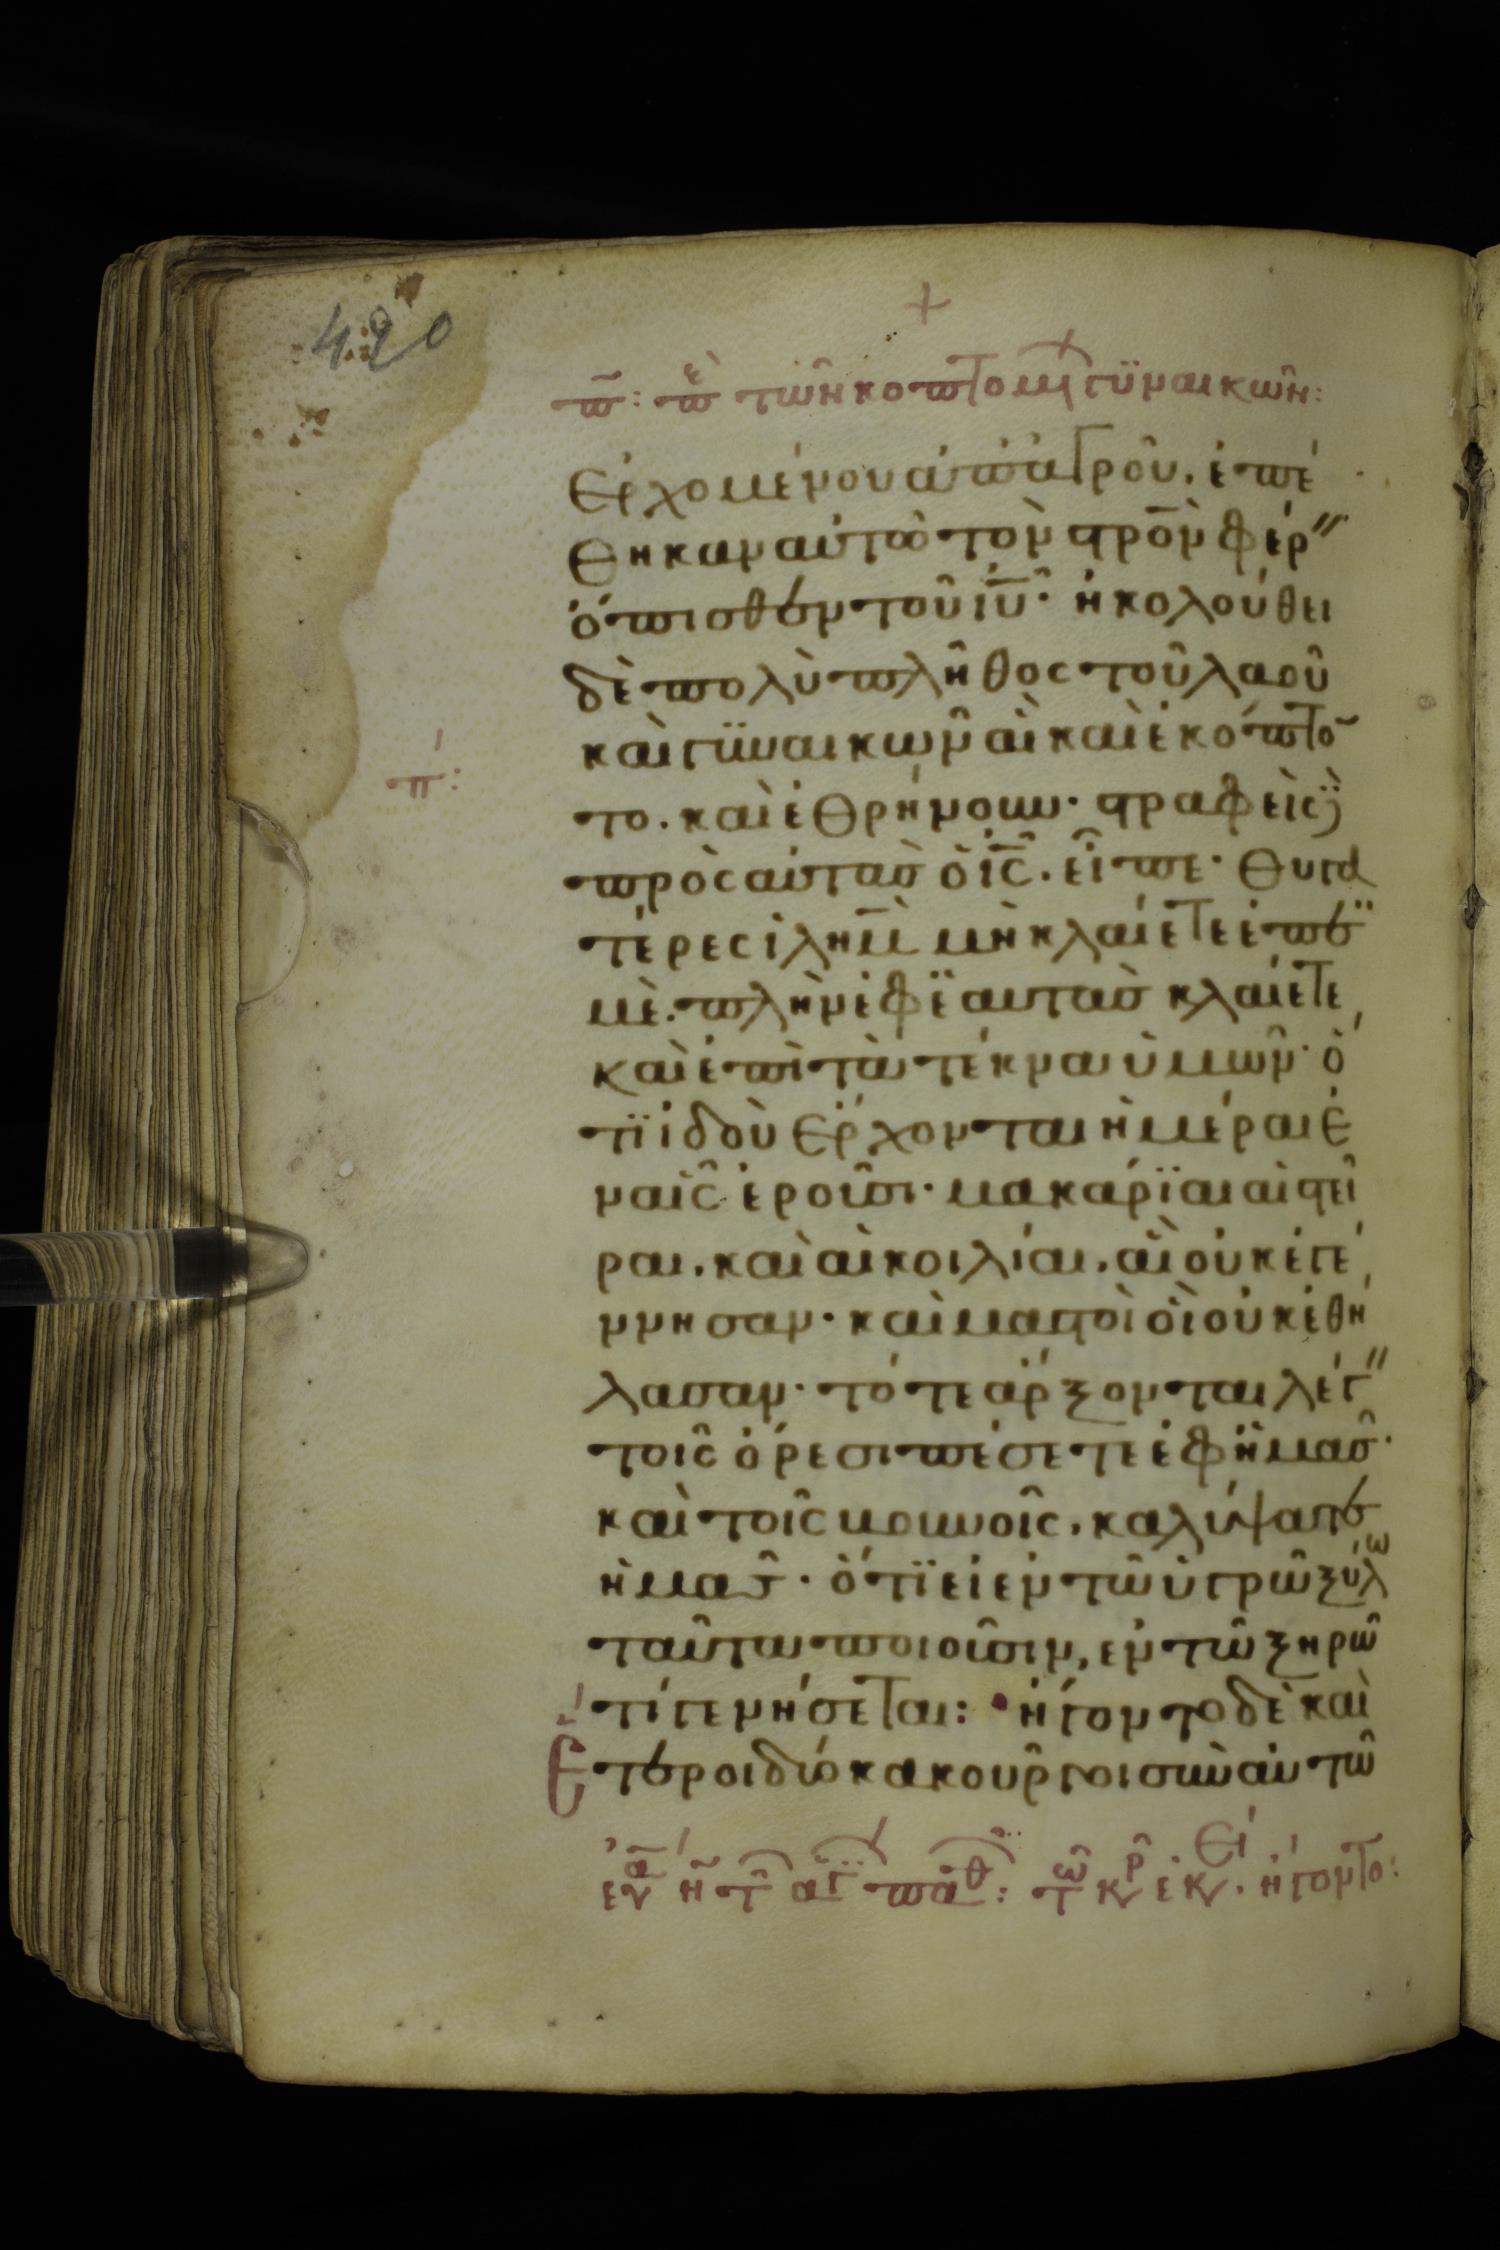 420
π: πε τῶν κοπτομ γϋναικῶν:
ἐρχομένου ἀπ ἀγροῦ. ἐπέ
θηκαν αὐτῶ τὸν στρον φέρ
ὄπισθεν τοῦ ιυ· ἠκολούθει
δὲ πολὺ πλῆθος τοῦ λαοῦ
καὶ γϋναικῶν αἳ καὶ ἐκόπτο
το. καὶ ἐθρήνουν· στραφεὶς
πρὸς αὐτασ ὁ ις. εἶπε· θυγα
τέρες ιλημ μὴ κλαίετε ἐπ
μὲ. πλὴν ἐφ ἑαυτασ κλαίετε
καὶ ἐπὶ τὰ τέκνα ὑμῶν· ὅ
τϊ ἰδοὺ ἔρχονται ἡμέραι ἐ
ναῖς ἐροῦσι· μακάρϊαι αἱ στεῖ
ραι. καὶ αἱ κοιλίαι. αἳ οὐκ ἐγέ
ννησαν· καὶ μαστοὶ οἳ οὐκ ἐθή
λασαν· τότε ἄρξονται λέγ
τοῖς ὄρεσι πέσετε ἐφ ἡμασ·
καὶ τοῖς βουνοῖς. καλύψατε
ἡμασ· ὅτϊ εἰ ἐν τῶ ὑγρῶ ξύλω
ταῦτα ποιοῦσιν, ἐν τῶ ξηρῶ
τί γενήσεται: ἤγοντο δὲ καὶ
ἕτεροι δύο κακοῦργοι σὺν αὐτῶ
π:
τ κ ἐκ. ἤγοντο: